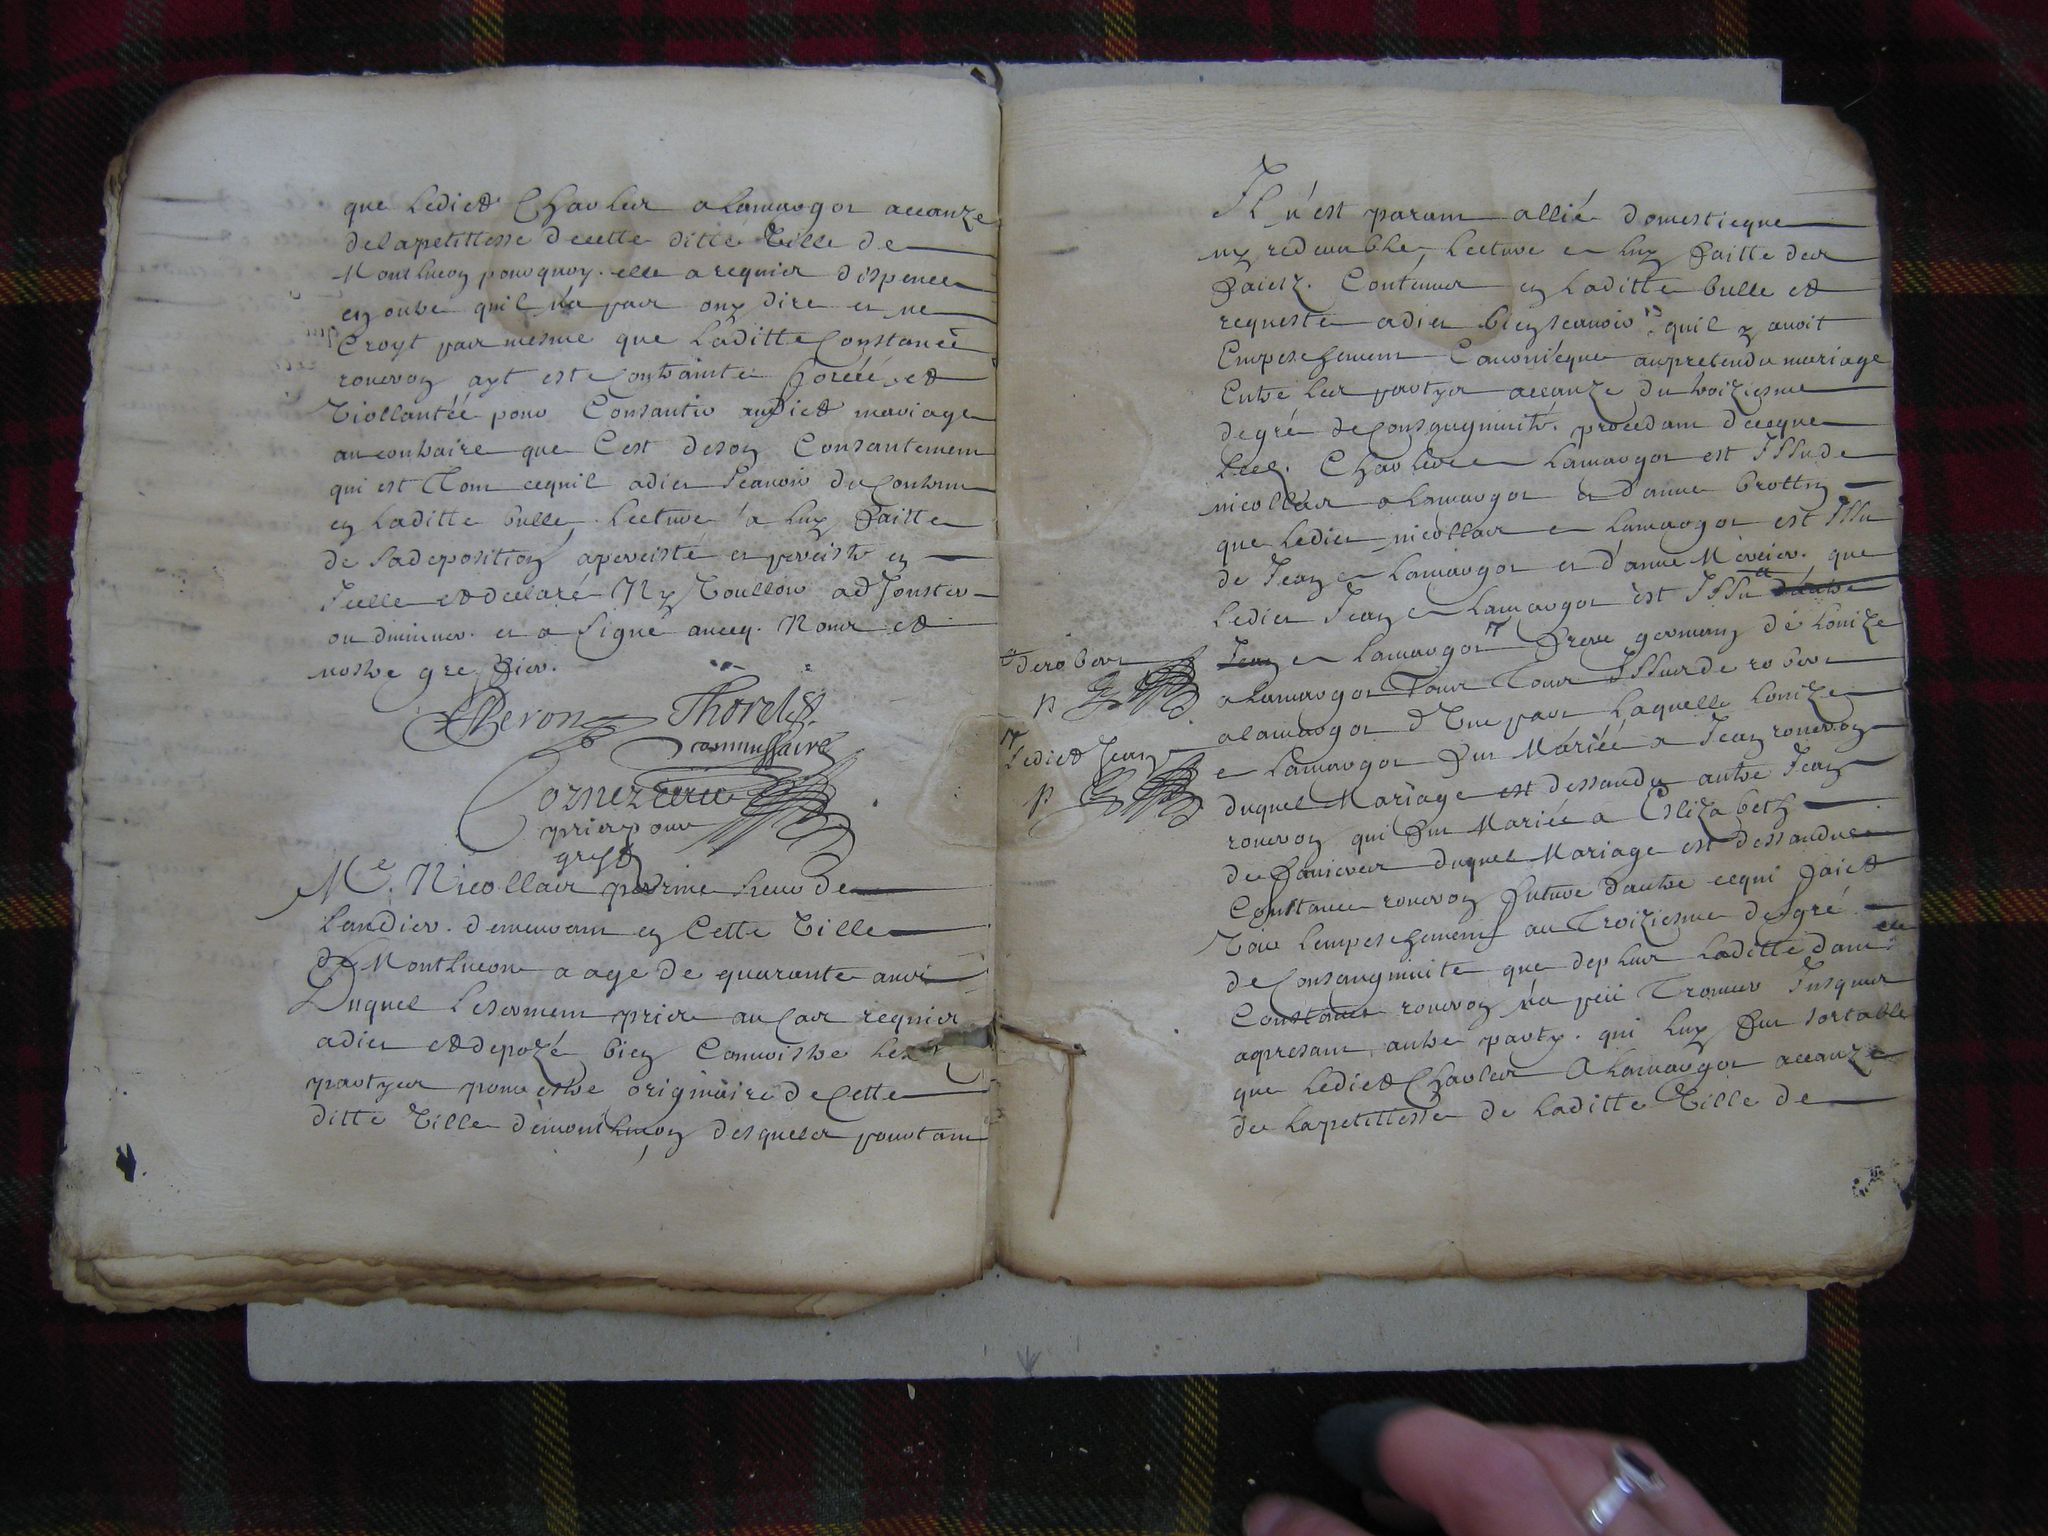 que ledict Charles alamargot accauze
de la petittesse de cette ditte Ville de
Montlucon pourquoy elle a requier dispence
en outre quil n'a pas ouy dire et ne
Croyt pas mesme que Laditte Constance
rouvroy ayt este Contrainte forcéé et
Viollantéé pour Consantir audict mariage
au contraire que C'est deson Consantement
qui est Tout cequil adict scavoir du Contenu
en laditte bulle Lecture a luy faitte
de sadeposition apercisté et percistr en
Icelle et declaré Ny Voulloir adjouster
ou diminuer et a signé avecq Nous et
nostre greffier
Theron Thorel
commissaire
prier pour
greff
Me Nicollas perrine sieur de
landier demeurant en Cette Ville
de Montlucon aage de quarante ans
Duquel leserment pris au cas requier
adict et depozé bien Connoistre les
partyes pour estre originaire de Cette
ditte Ville demontlucon desquelles pourtant
Il n'est parant allié domesticque
ny redevable, Lecture a luy faitte des
faictz Contenus en laditte bulle et
requeste adict bien scavoir quil y avoit
Empeschement Canonicque aupretendu mariage
Entre les partyes accauze du troiziesme
degré de Consaguinité procedant decque
led. Charles alamargot est Issu de
nicollas alamargot et danne brottin
que ledict nicollas alamargot est Issu
de Jean alamargot et d'anne Mercier que
ledict Jean alamargot est Issu dautre
Jean alamargot frere germain de Louize
alamargot Tous Tous Issus de robert
alamargot d Une part Laquelle Louize
alamargot fut Mariéé a Jean rouvroy
duquel Mariage est dessandu autre Jean
rouvroy qui fut Mariéé a Elizabeth
duquel Mariage est dessandue
Constance rouvroy future dautre cequi faict
Voir lempeschement au Troiziesme degré
de Consanguinite que deplus laditte dam.lle
Constance rouvroy n'a peu Trouver Jusques
apresant autre party qui luy fut sortable
que ledict Charles Alamargot accauze
de lapetittesse de laditte Ville de
de robert
p
ledict Jean
p